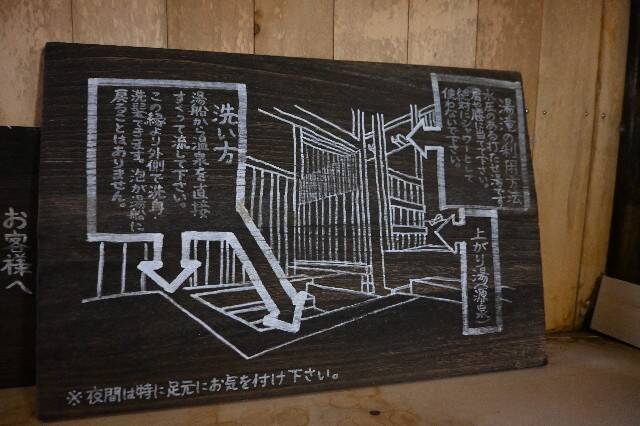 湯滝利用方法
肩や腰に当て下さい。
絶対にシャワーとして
使わないで下さい。
上がり湯(源泉)
洗い方
湯船から温泉を直接
すくって流して下さい。
この縁より外側で洗身・
洗髪できます。泡が湯船に
戻ることはありません。
お客様へ
※夜間は特に足元にお気を付け下さい。